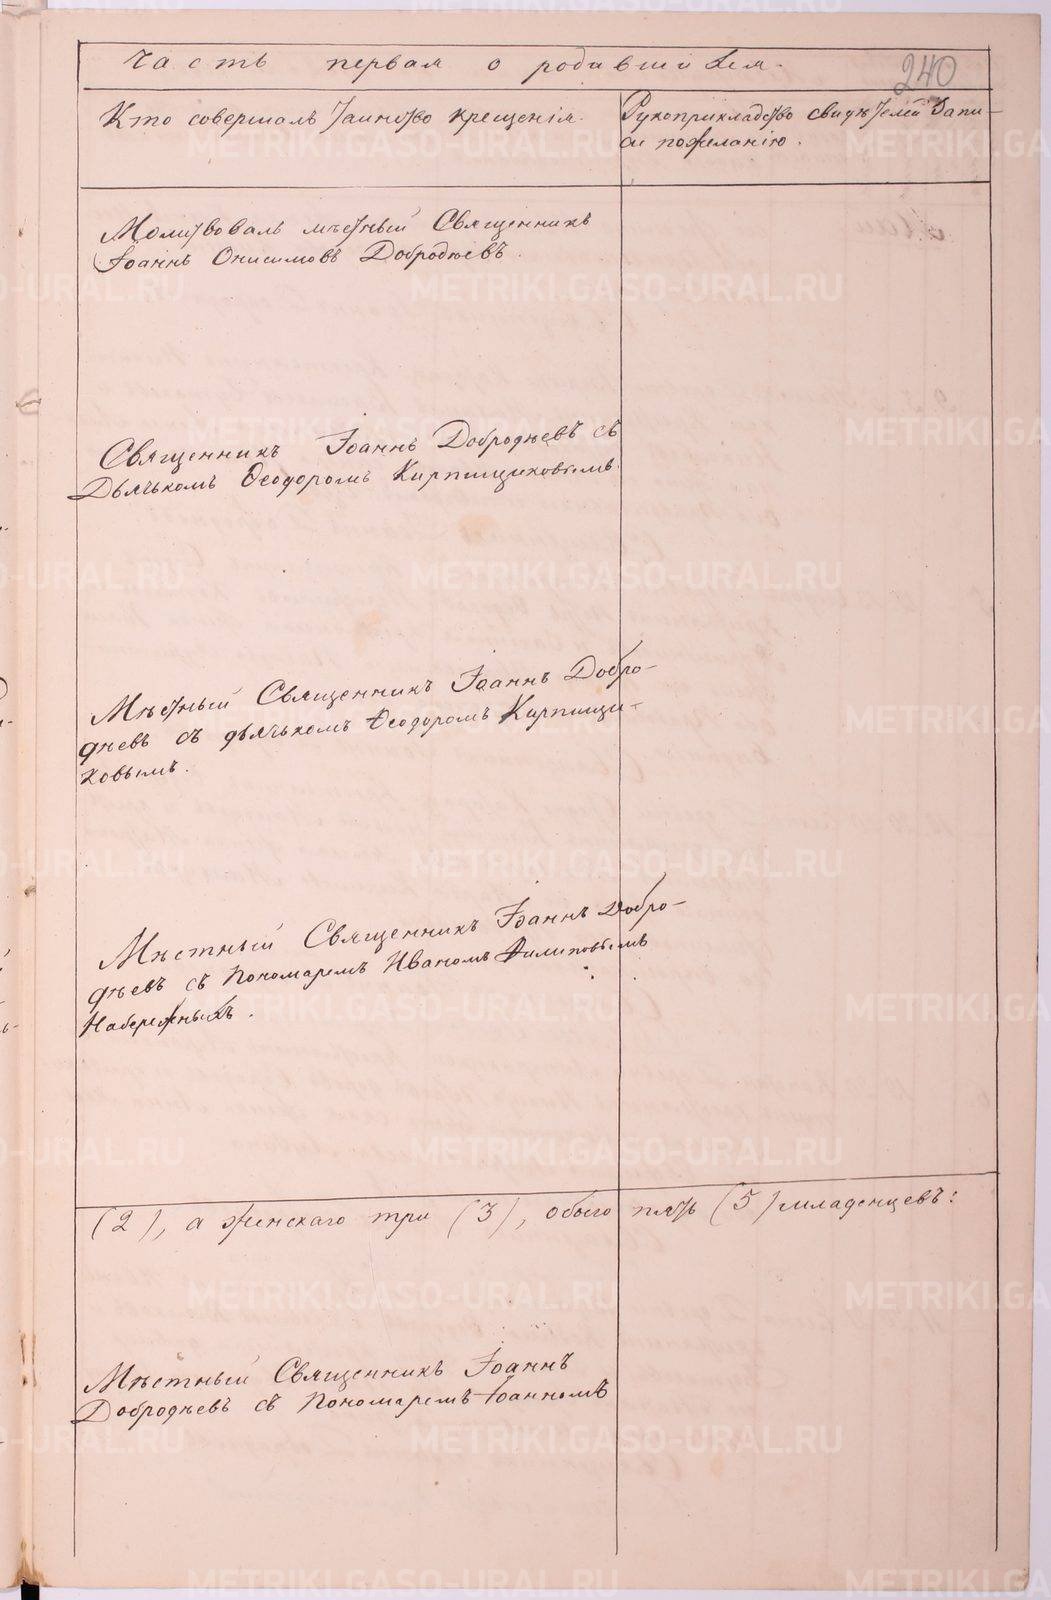 Часть первая о родившихся.
240
Кто совершалъ таинство крещенія.
Рукоприкладство свидѣтелей запи-
си по желанію.
Молитвовалъ мѣстный Священникъ
Іоаннъ Онисимовъ Добродѣевъ.
Священникъ Іоаннъ Добродѣевъ съ
Дьячькомъ Ѳеодоромъ Кирпищиковымъ.
Мѣстный Священникъ Іоаннъ Добро-
дѣевъ съ дьячькомъ Ѳеодоромъ Кирпищи-
ковымъ.
Мѣстный Священникъ Іоаннъ Добро-
дѣевъ съ Пономаремъ Иваномъ Филиповымъ
Набережныхъ.
(2), а женскаго три (3), обоего пять (5) младенцевъ:
Мѣстный Священникъ Іоаннъ
Добродѣевъ съ Пономаремъ Іоанномъ
METRIKI.GASO-URAL.RU